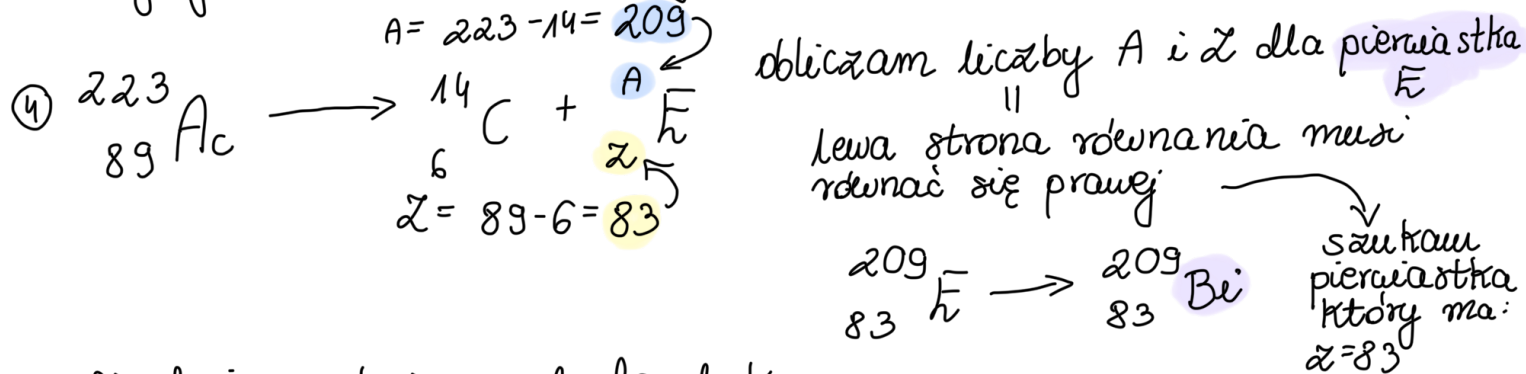 A = 223 - 14 = 209
④ 223 89 Ac → 14 6 C + A Z E
Z = 89 - 6 = 83
obliczam liczby A i Z dla pierwiastka
E
=
lewa strona równania musi
równać się prawej →
209 83 E → 209 83 Bi
szukam
pierwiastka
który ma:
Z = 83